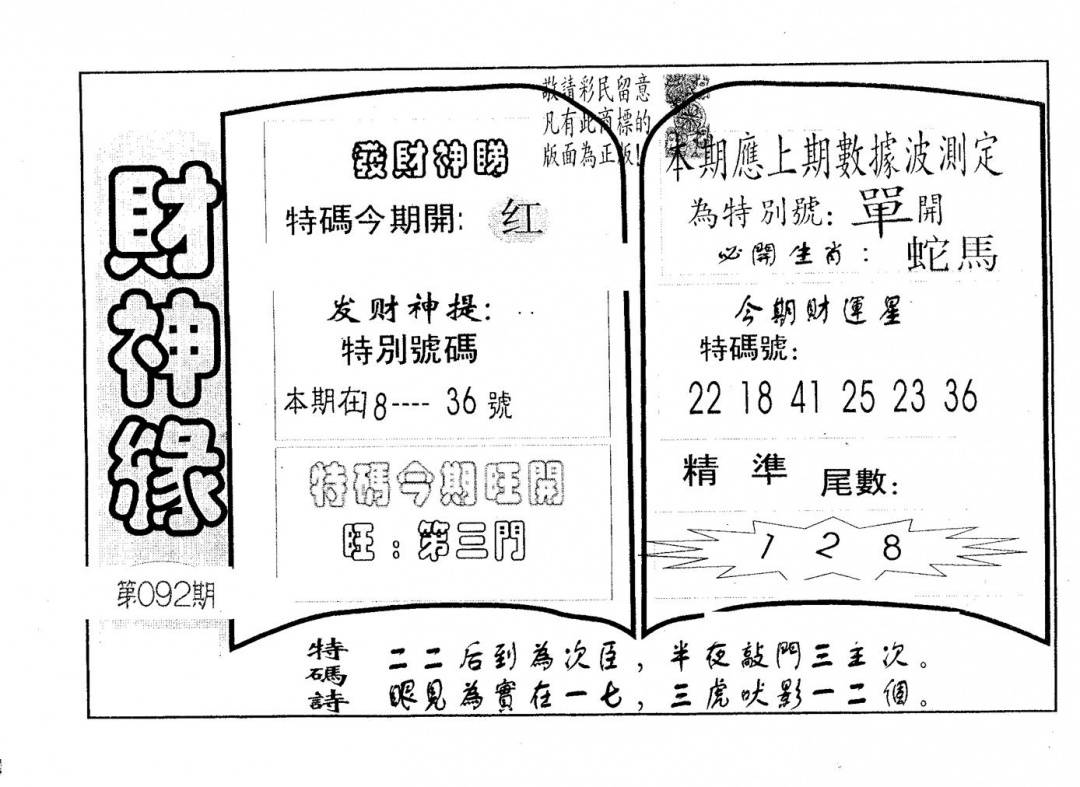 財神緣
第092期
敬請彩民留意
凡有此商標的
版面為正版!
發財神睇
特碼今期開: 红
发财神提:
特別號碼
本期在8---- 36 號
特碼今期旺開
旺：第三門
本期應上期數據波測定
為特別號: 單開
必開生肖： 蛇馬
今期財運星
特碼號:
22 18 41 25 23 36
精準 尾數:
1 2 8
特碼詩
二二后到為次臣，半夜敲門三主次。
眼見為實在一七，三虎吠影一二個。